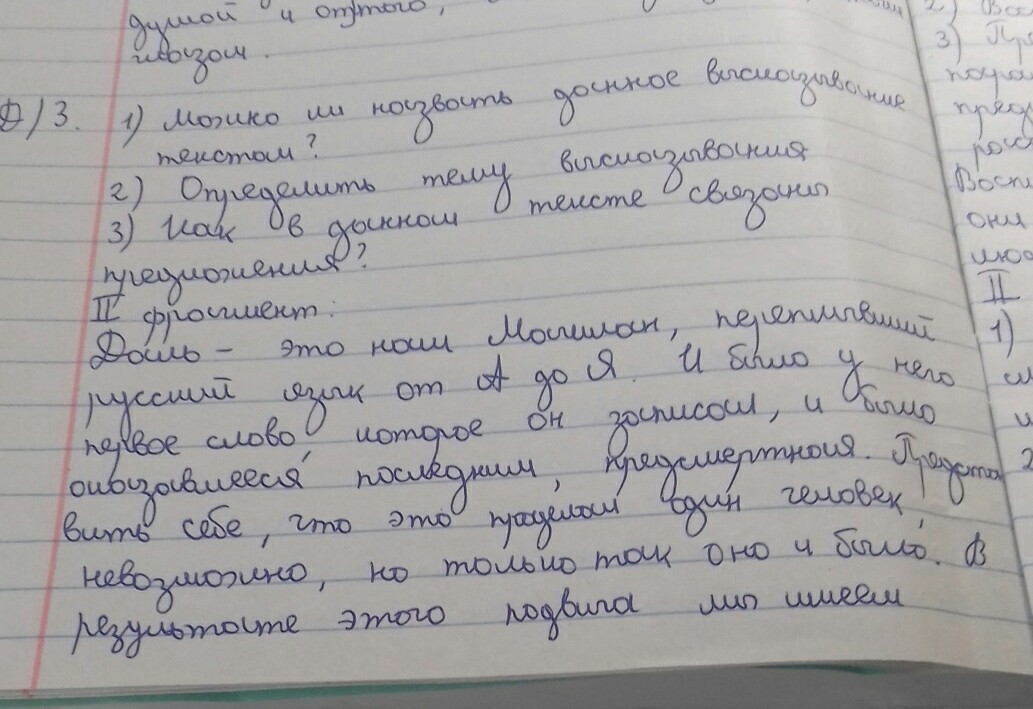 думой и оттого,
глазом.
Д/З. 1) Можно ли назвать данное высказывание
текстом?
2) Определить тему высказывания
3) Как в данном тексте связаны
предложения?
II фрагмент:
Даль – это наш Магеллан, переплывший
русский язык от А до Я. И было у него
первое слово, которое он записал, и было
оказавшееся последним, предсмертное. Предста
вить себе, что это проделал один человек,
невозможно, но только так оно и было. В
результате этого подвига мы имеем
2) Вос
3) Пр
пред
они
II
1)
2